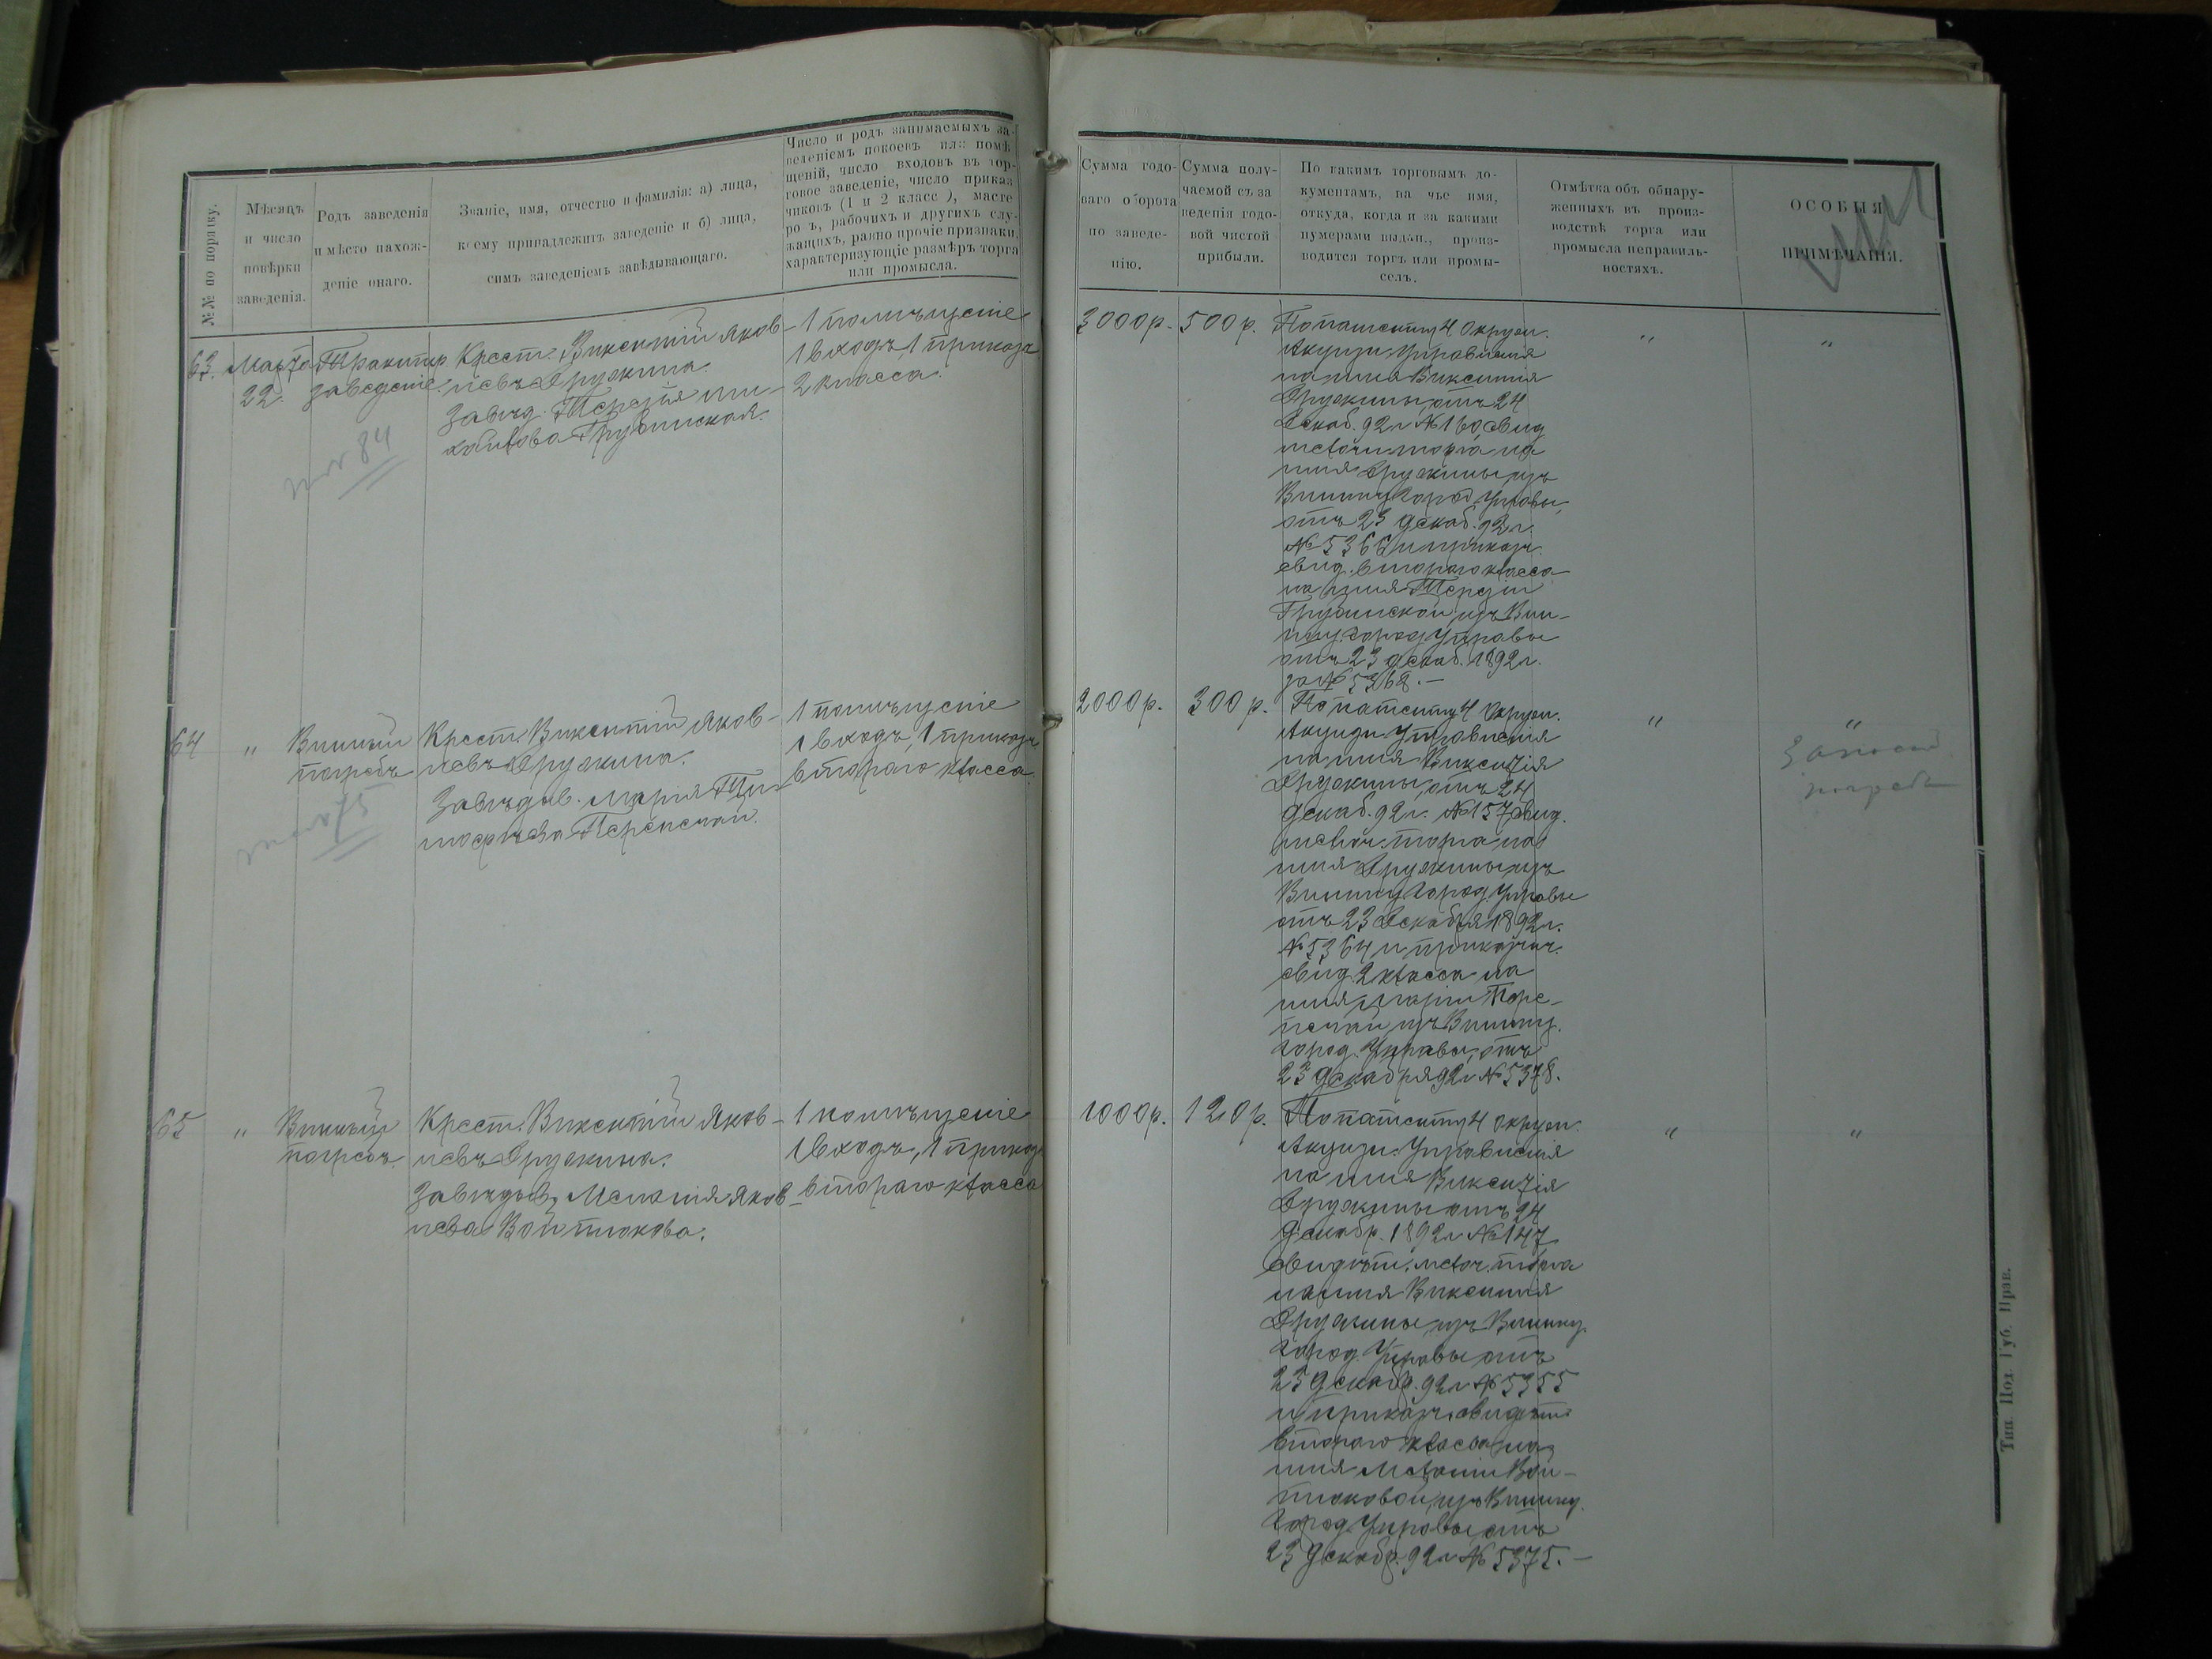 №№ по порядку.
Мѣсяцъ
и число
повѣрки
заведенія.
Родъ заведенія
и мѣсто нахож-
деніе онаго.
Званіе, имя, отчество и фамилія: а) лица,
коему принадлежитъ заведеніе и б) лица,
симъ заведеніемъ завѣдывающаго.
Число и родъ занимаемыхъ за-
веденіемъ покоевъ или помѣ-
щеній, число входовъ въ тор-
говое заведеніе, число приказ
чиковъ (1 и 2 класс), масте
ро ъ, рабочихъ и другихъ слу-
жащихъ, равно прочіе признаки,
характеризующіе размѣръ торга
или промысла.
Сумма годо-
ваго оборота
по заведе-
нію.
Сумма полу-
чаемой съ за
веденія годо-
вой чистой
прибыли.
По какимъ торговымъ до-
кументамъ, на чье имя,
откуда, когда и за какими
нумерами выдан., произ-
водится торгъ или промы-
селъ.
Отмѣтка объ обнару-
женныхъ въ произ-
водствѣ торга или
промысла неправиль-
ностяхъ.
ОСОБЫЯ
ПРИМѢЧАНІЯ.
63. Марта 22.
Трактир
заведеніе.
Крест. Викентій Яков-
левъ Дружина.
Завѣд. Терезія Ми-
хайлова Грубинская.
1 помѣщеніе
1 входъ, 1 приказ
2 класса.
3000 р. 500 р.
По патенту 4 Окружн.
Акцизн. Управленія
на имя Викентія
Дружины, отъ 24
Декаб. 92 г. № 160, свид.
мелочн. торга на
имя Дружины, изъ
Винниц. Город. Управы,
отъ 23 декаб. 92 г.
№ 5366 и приказч.
свид. втораго класса
на имя Терезіи
изъ Вин-
ниц. Город. Управы
отъ 23 декаб. 1892 г.
за № 5368. —
" "
№ 84
64 "
Винный
погребъ
Крест. Викентій Яков-
левъ Дружина.
Завѣдыв. Марія Ти-
мофѣева
1 помѣщеніе
1 входъ, 1 приказч
втораго класса.
2000 р. 300 р.
По патенту 4 Окружн.
Акцизн. Управленія
на имя Викентія
Дружины, отъ 24
декаб. 92 г. № 157, свид.
мелочн. торга на
имя Дружины изъ
Винниц. Город. Управы
отъ 23 Декабря 1892 г.
№ 5364 и приказчич.
свид. 2 класса на
имя Маріи
изъ Винниц.
Город. Управы, отъ
23 Декабря 92 г. № 5378.
" "
погребъ
65 "
Винный
погребъ.
Крест. Викентій Яков-
левъ Дружина.
Завѣдыв. Меланія Яков-
лева Войтюкова.
1 помѣщеніе
1 входъ, 1 приказ
втораго класса
1000 р. 120 р.
По патенту 4 Окружн.
Акцизн. Управленія
на имя Викентія
Дружины отъ 24
декабр. 1892 г. № 147
свидѣт. мелоч. торга
на имя Викентія
Дружины, изъ Винниц.
Город. Управы отъ
23 декабр. 92 г. № 5355
и приказч. свидѣт.
втораго класса на
имя Меланіи Вой-
тюковой, изъ Винниц.
Город. Управы отъ
23 декабр. 92 г. № 5375. —
" "
Тип. Под. Губ. Прав.